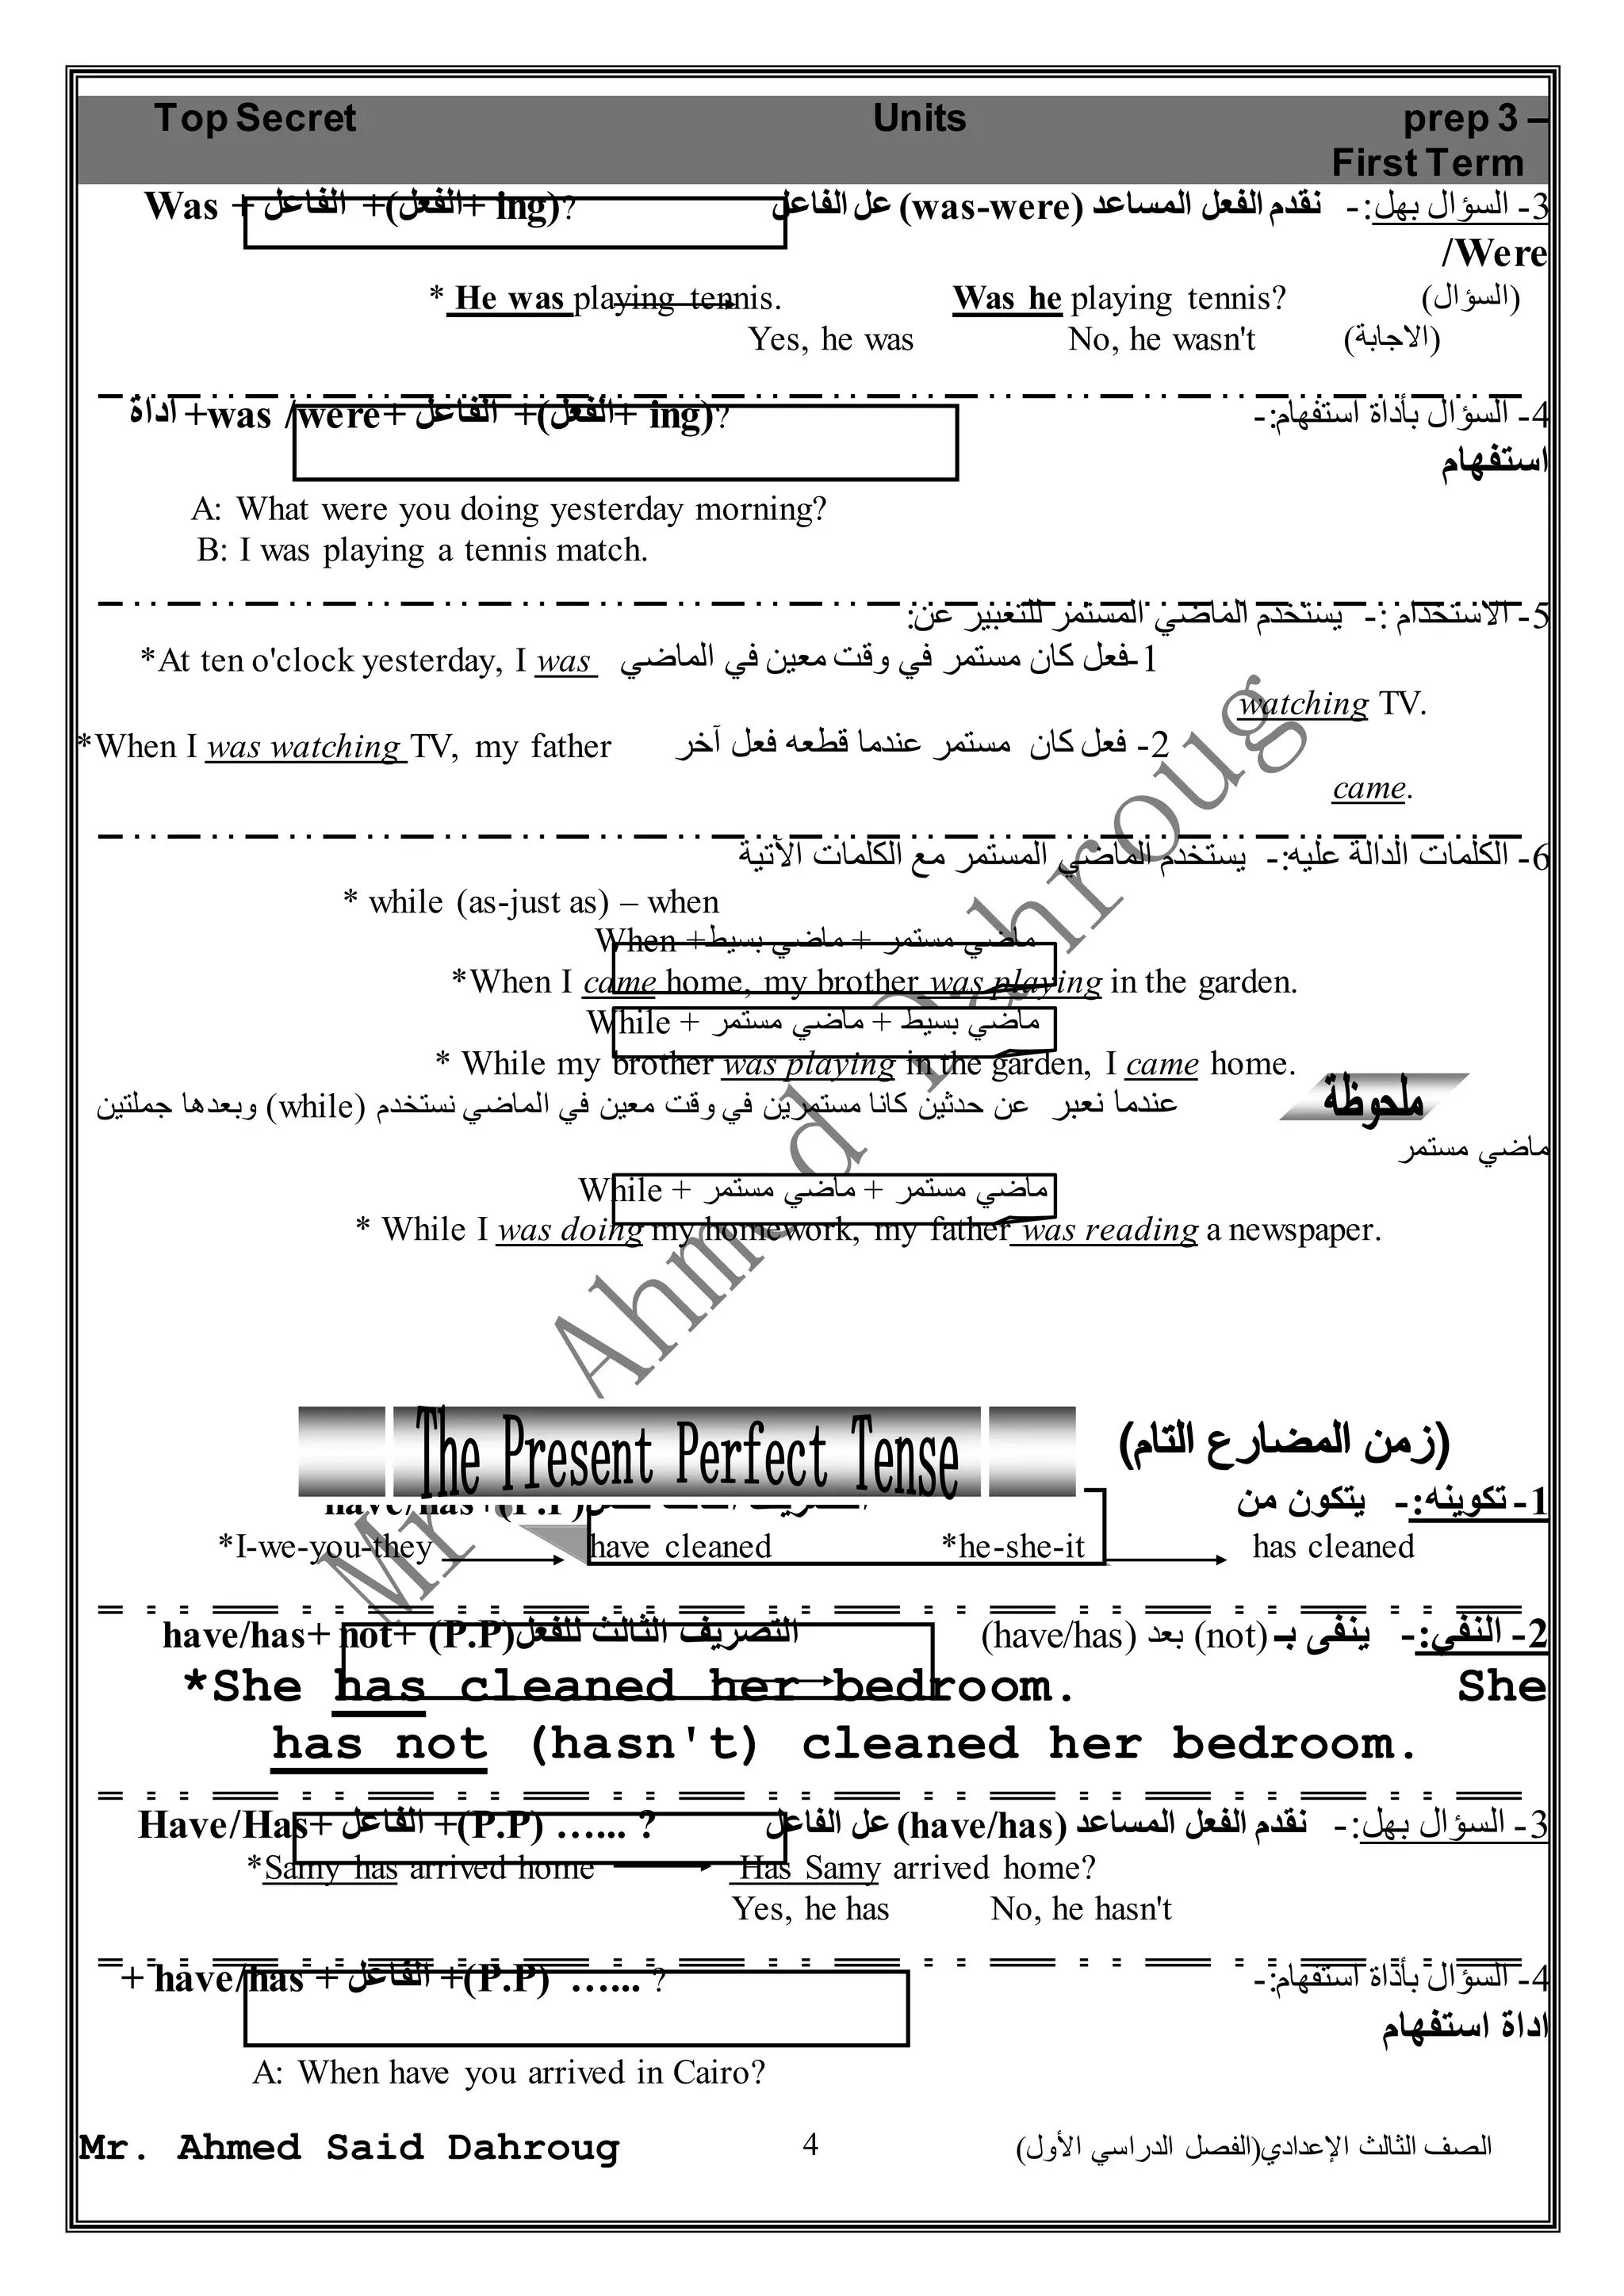 Top Secret Units prep 3 –
First Term
3- السؤال بهل:- نقدم الفعل المساعد (was-were) عل الفاعل Was + الفاعل +(الفعل+ ing)?
/Were
* He was playing tennis. Was he playing tennis? (السؤال)
Yes, he was No, he wasn't (الاجابة)
4- السؤال بأداة استفهام:- اداة +was /were+ الفاعل +(الفعل+ ing)?
استفهام
A: What were you doing yesterday morning?
B: I was playing a tennis match.
5- الاستخدام :- يستخدم الماضي المستمر للتعبير عن:
1-فعل كان مستمر في وقت معين في الماضي *At ten o'clock yesterday, I was
watching TV.
2- فعل كان مستمر عندما قطعه فعل آخر *When I was watching TV, my father
came.
6- الكلمات الدالة عليه:- يستخدم الماضي المستمر مع الكلمات الآتية
* while (as-just as) – when
When +ماضي مستمر + ماضي بسيط
*When I came home, my brother was playing in the garden.
While + ماضي بسيط + ماضي مستمر
* While my brother was playing in the garden, I came home.
ملحوظة عندما نعبر عن حدثين كانا مستمرين في وقت معين في الماضي نستخدم (while) وبعدها جملتين
ماضي مستمر
While + ماضي مستمر + ماضي مستمر
* While I was doing my homework, my father was reading a newspaper.
The Present Perfect Tense (زمن المضارع التام)
1- تكوينه:- يتكون من have/has+(P.P)
*I-we-you-they have cleaned *he-she-it has cleaned
2- النفي:- ينفى بـ (not) بعد (have/has) have/has+ not+ (P.P)التصريف الثالث للفعل
*She has cleaned her bedroom. She
has not (hasn't) cleaned her bedroom.
3- السؤال بهل:- نقدم الفعل المساعد (have/has) عل الفاعل Have/Has+ الفاعل +(P.P) …... ?
*Samy has arrived home Has Samy arrived home?
Yes, he has No, he hasn't
4- السؤال بأداة استفهام:- + have/has + الفاعل +(P.P) …... ?
اداة استفهام
A: When have you arrived in Cairo?
Mr. Ahmed Said Dahroug 4 الصف الثالث الإعدادي(الفصل الدراسي الأول)
Mr. Ahmed Dahroug